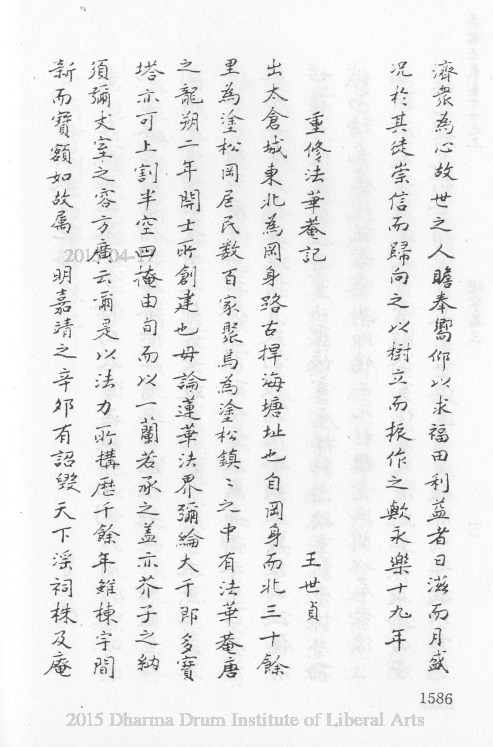 濟衆為心故世之人瞻奉嚮仰以求福田利益者日滋而月盛
况於其徒崇信而歸向之以樹立而振作之歟永樂十九年
重修法華菴記
王世貞
出太倉城東北為岡身路古捍海塘址也自岡身而北三十餘
里為塗松岡居民数百家聚焉為塗松鎮〻之中有法華菴唐
之龍朔二年開士所創建也毋論蓮華法界彌綸大千即多寶
塔亦可上割半空四掩由旬而以一蘭若承之盖亦芥子之納
須彌丈室之容方廣云爾是以法力所構歷千餘年雖棟宇間
新而寶額如故属 明嘉靖之辛夘有詔毀天下淫祠株及庵
1586
2015 Dharma Drum Institute of Liberal Arts